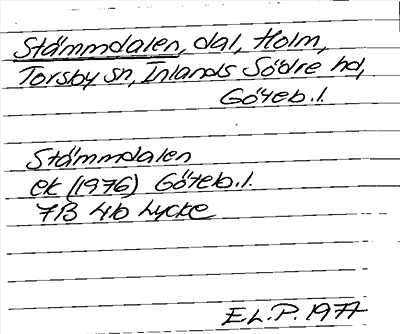 Stämmdalen, dal, Holm,
Torsby sn, Inlands Södre hd,
Göteb. l.
Stämmdalen
ek (1976) Göteb. l.
7B 4b Lycke
E.L.P. 1977